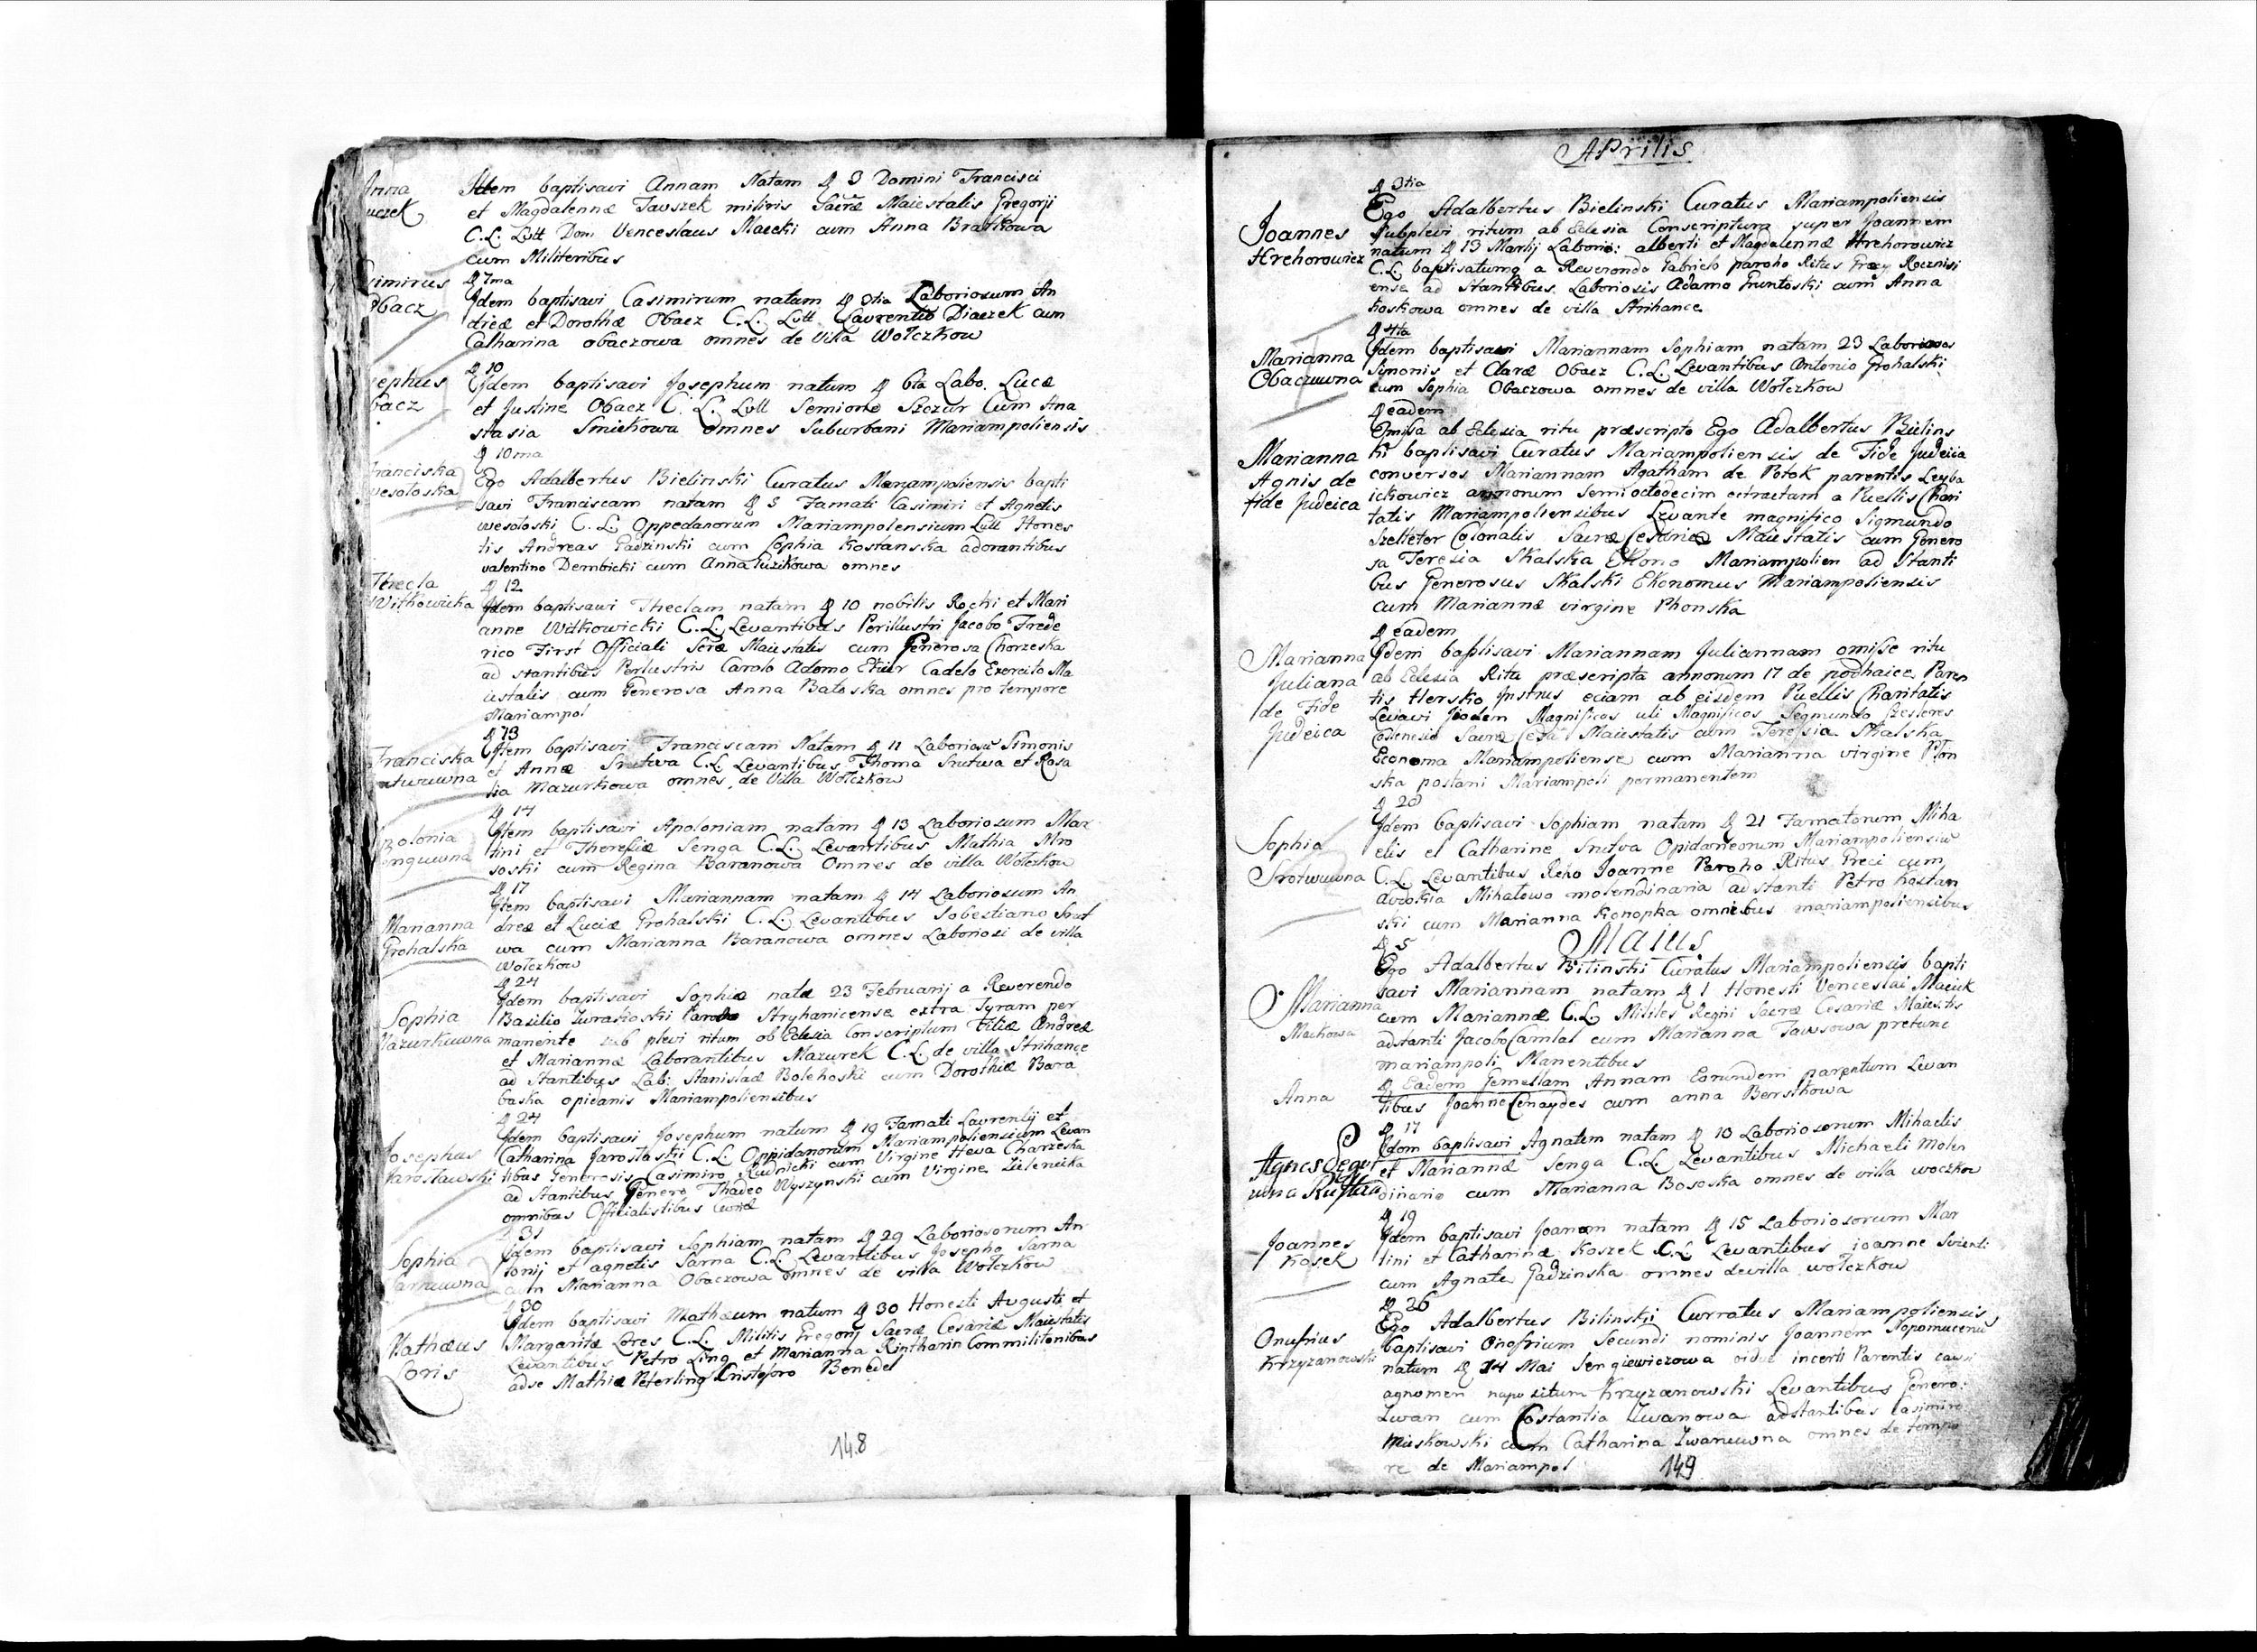 Anna
uczek
Idem baptisavi Annam Natam D 3 Domini Francisci
et Magdalennæ Tauszek militis Sacræ Maiestatis Gregorji
C.L. Lutt Dom Venceslaus Maecki cum Anna Bratkowa
cum Militeribus
simirus
Obacz
D 7ma
Idem baptisavi Casimirum natum D 3tia Laboriosum An
dreæ et Dorothæ Obacz C.L. Lutt Laurentio Diaczek cum
Catharina obaczowa omnes de Villa Wołczkow
sephus
bacz
D 10
Idem baptisavi Josephum natum D 6ta Labo. Lucæ
et Justine Obacz C.L. Lutt Semione Szczur Cum Ana
stasia Smiekowa omnes Suburbani Mariampoliensis
D 10ma
ranciska
wesołoska
Ego Adalbertus Bielinski Curatus Mariampoliensis bapti
savi Franciscam natam D 5 Famati Casimiri et Agnetis
wesołoski C.L. Oppedanorum Mariampolensium Lutt Hones
tis Andreas Gadzinski cum Sophia Kostanska adorantibus
valentino Dembicki cum Anna Luzikowa omnes
Thecla
Witkowicka
D 12
Idem baptisavi Theclam natam D 10 nobilis Rochi et Mari
anne Witkowicki C.L. Levantibus Perillustri Jacobo Frede
rico First Officiali Scræ Maiestatis cum Generosa Chorzeska
ad stantibus Perlustris Carolo Adomo Ekier Cadelo Exercito Ma
iestatis cum Generosa Anna Batoska omnes pro tempore
Mariampol
D 13
Franciska
utwuwna
Item baptisavi Franciscam Natam D 11 Laboriosu Simonis
et Annæ Srutwa C.L. Levantibus Thoma Srutwa et Rosa
lia Mazurkowa omnes de Villa Wołczkow
D 14
polonia
enguwna
Item baptisavi Apoloniam natam D 13 Laboriosum Mar
tini et Theresiæ Senga C.L. Levantibus Mathia Mro
soski cum Regina Baranowa Omnes de villa Wołczkow
D 17
Marianna
Grohalska
Item baptisavi Mariannam natam D 14 Laboriosum An
dreæ et Luciæ Grohalski C.L. Levantibus Sobestiano Srut
wa cum Marianna Baranowa omnes Laboriosi de villa
Wołczkow
D 24
Sophia
Mazurkuwna
Idem baptisavi Sophiæ natæ 23 Februarij a Reverendo
Basilio Zurakoski Paroho Stryhanicense extra Tyram per
manente sub plevi ritum ob Eclesia Conscriptum filiæ Andreæ
et Mariannæ Laborantibus Mazurek C.L. de villa Strihance
ad Stantibus Lab: Stanislaæ Bolehoski cum Dorothiæ Bara
baska opidanis Mariampoliensibus
D 24
Josephus
Jarosławski
Idem baptisavi Josephum natum D 19 Famati Laurentij et
Catharina Jarostaskii C.L. Oppidanorum Mariampoliensium Levan
tibus Generosis Casimiro Rudnicki cum Virgine Heva Charzeska
ad stantibus Genero Thadeo Wyszynski cum Virgine Zielenicka
omnibus Officialistibus
D 31
Sophia
Sarnuwna
Idem baptisavi Sophiam natam D 29 Laboriosorum An
tonij et agnetis Sarna C.L. Levantibus Josepho Sarna
cum Marianna Obaczowa omnes de villa Wołczkow
D 30
Mathæus
Loris
Idem baptisavi Mathæum natum D 30 Honesti Augusti et
Margaritæ Lores C.L. Militis Gregorij Sacræ Cesariæ Maiestatis
Levantibus Petro Ling et Marianna Rintharin Commilitonibus
adse Mathiæ Peterling Kristoforo Benedel
148
APrilis
D 3tia
Joannes
Hrehorowicz
Ego Adalbertus Bielinski Curatus Mariampoliensis
Subplevi ritum ab Eclesia Conscriptum super Joannem
natum D 13 Martij Laborio: alberti et Magdalennæ Hrehorowicz
C.L. baptisatumq a Reverondo Gabrielo paroho Ritus Græy Rocznisi
ense ad stantibus Laboriosis Adamo Gruntoski cum Anna
koskowa omnes de villa Strihance
D 4ta
Marianna
Obaczuwna
Idem baptisavi Mariannam Sophiam natam 23 Laboriosos
Simonis et Claræ Obacz C.L. Levantibus Antonio Grohalski
cum Sophia Obaczowa omnes de villa Wołczkow
D eadem
Marianna
Agnis de
fide Judeica
Omisa ab Eclesia ritu præscripto Ego Adalbertus Bielins
ki baptisavi Curatus Mariampoliensis de Fide Judeiia
conversos Mariannam Agatham de Potok parentis Leyba
ickowicz annorum semioctodecim extractum a Puellis Chari
tatis Mariampoliensibus Levante magnifico Sigmundo
Szelteter Colonalis Sacræ Cesariæ Maiestatis cum Genero
sa Teresia Skalska Ekono Mariampolien ad Stanti
bus Generosus Skalski Ekonomus Mariampoliensis
cum Mariannæ virgine Phonska
D eadem
Marianna
Juliana
de Fide
Judeica
Idem baptisavi Mariannam Juliannam omisse ritu
ab Eclesia Ritu præscripta annorum 17 de podhaice Paren
tis Hersko Justrus eciam ab eisdem Puellis Charitatis
Levavi Jisdem Magnificos uti Magnificos Segmundo Szesteres
Colenesio Sacræ Maiestatis cum Teressia Skalska
Economa Mariampoliense cum Marianna virgine Plon
ska postani Mariampoli permanentem
D 28
Sophia
Srotwuwna
Idem baptisavi Sophiam natam D 21 Famatorum Miha
elis et Catharine Srutva Opidaneorum Mariampoliensiu
C.L. Levantibus Reho Joanne Paroho Ritus Greci cum
avdokia Mihałowo molendinaria adstanti Petro Kostan
ski cum Marianna Konopka omnibus mariampoliensibus
Maius
D 5
Marianna
Mackowa
Ego Adalbertus Bilinski Curatus Mariampoliensis bapti
savi Mariannam natam D 1 Honesti Venceslai Maciek
cum Mariannæ C.L. Milites Regni Sacræ Cesariæ Maiestis
adstanti Jacobo Camlal cum Marianna Tawsowa pretunc
mariampoli Manentibus
Anna
D Eadem Gemellam Annam Eorundem parentum Levan
tibus Joanne Cenaydes cum anna Berstkowa
D 17
Agnes Segie
wna Rustica
Idem baptisavi Agnatem natam D 10 Laboriosorum Mihaelis
et Mariannæ Senga C.L. Levantibus Michaeli Molen
dinario cum Marianna Bososka omnes de villa woczkow
D 19
Joannes
Kosek
Idem baptisavi Joanem natam D 15 Laboriosorum Mar
tini et Catharinæ Koszek C.L. Levantibus joanne
cum Agnate Gadzinska omnes devilla wołczkow
D 26
Onufrius
Krzyzanowski
Ego Adalbertus Bilinski Curratus Mariampoliensis
baptisavi Onofrium Secundi nominis Joannem Nepomucenu
natum D 14 Mai Sengiewiczowa incerti Parentis
agnomen Krzyzanowski Levantibus Genero:
Iwan cum Costantia Iwanowa adstantibus Casimiro
Miskowski cum Catharina Iwanuwna omnes de tempo
re de Mariampol
149